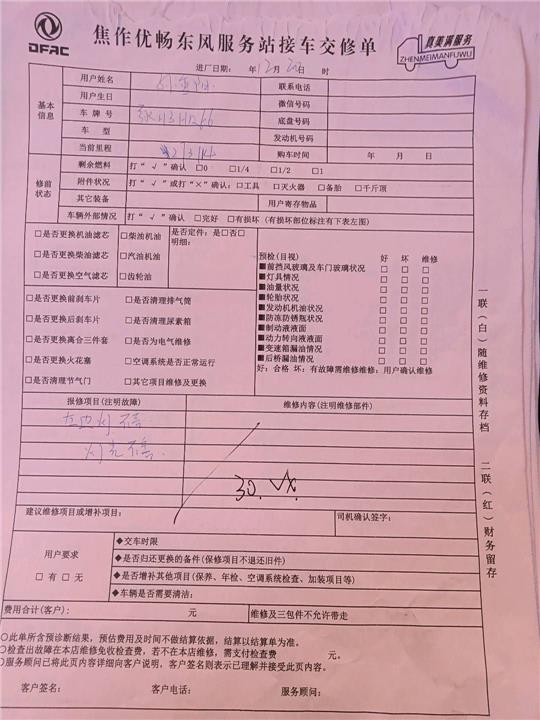 DFAC
焦作优畅东风服务站接车交修单
真美满服务
ZHENMEIMANFUWU
进厂日期: 年12月20日 时
基本信息
用户姓名 联系电话
用户生日 微信号码
车牌号 底盘号码
车型 发动机号码
当前里程 购车时间 年 月 日
修前状态
剩余燃料 打“√”确认 □0 □1/4 □1/2 □1
附件状况 打“√”或打“×”确认:□工具 □灭火器 □备胎 □千斤顶
其它装备 用户寄存物品
车辆外部情况 打“√”确认 □完好 □有损坏(有损坏部位标注有下表左图)
□是否更换机油滤芯 □柴油机油 是否定件:是□否□
□是否更换柴油滤芯 □汽油机油 明细:
□是否更换空气滤芯 □齿轮油
□是否更换前刹车片 □是否清理排气筒
□是否更换后刹车片 □是否清理尿素箱
□是否更换离合三件套 □是否为电气维修
□是否更换火花塞 □空调系统是否正常运行
□是否清理节气门 □其它项目维修及更换
预检(目视) 好 坏 维修
■前挡风玻璃及车门玻璃状况 □ □ □
■灯具情况 □ □ □
■油量状况 □ □ □
■轮胎状况 □ □ □
■发动机机油状况 □ □ □
■防冻防锈瓶状况 □ □ □
■制动液液面 □ □ □
■动力转向液液面 □ □ □
■变速箱漏油情况 □ □ □
■后桥漏油情况 □ □ □
好:合格 坏:有故障需维修维修:用户确认维修
报修项目(注明故障) 维修内容(注明维修部件)
灯光不亮
30.
建议维修项目或增补项目: 司机确认签字:
用户要求
□有 □无
◆交车时限
◆是否归还更换的备件(保修项目不退还旧件)
◆是否增补其他项目(保养、年检、空调系统检查、加装项目等)
◆车辆是否需要清洁:
费用合计(客户): 元 维修及三包件不允许带走
○此单所含预诊断结果,预估费用及时间不做结算依据,结算以结算单为准。
○检查出故障在本店维修免收检查费,若不在本店维修,需支付检查费 元。
○服务顾问已将此页内容详细向客户说明,客户签名则表示已理解并接受此页内容。
客户签名: 客户电话: 服务顾问:
一联(白)随维修资料存档 二联(红)财务留存